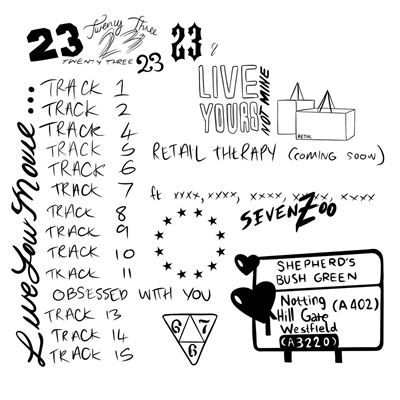 23
Twenty Three
23
TWENTY THREE
23
23
?
LIVE
YOURS
NOT MINE
RETAIL
Live Your Movie...
TRACK 1
TRACK 2
TRACK 4
TRACK 5
TRACK 6
TRACK 7
TRACK 8
TRACK 9
TRACK 10
TRACK 11
OBSESSED WITH YOU
TRACK 13
TRACK 14
TRACK 15
RETAIL THERAPY (COMING SOON)
ft xxxx, xxxx, xxxx, xxxx, xxxx
SEVENZOO
6 7
6
SHEPHERD'S
BUSH GREEN
Notting (A402)
Hill Gate
Westfield
(A3220)